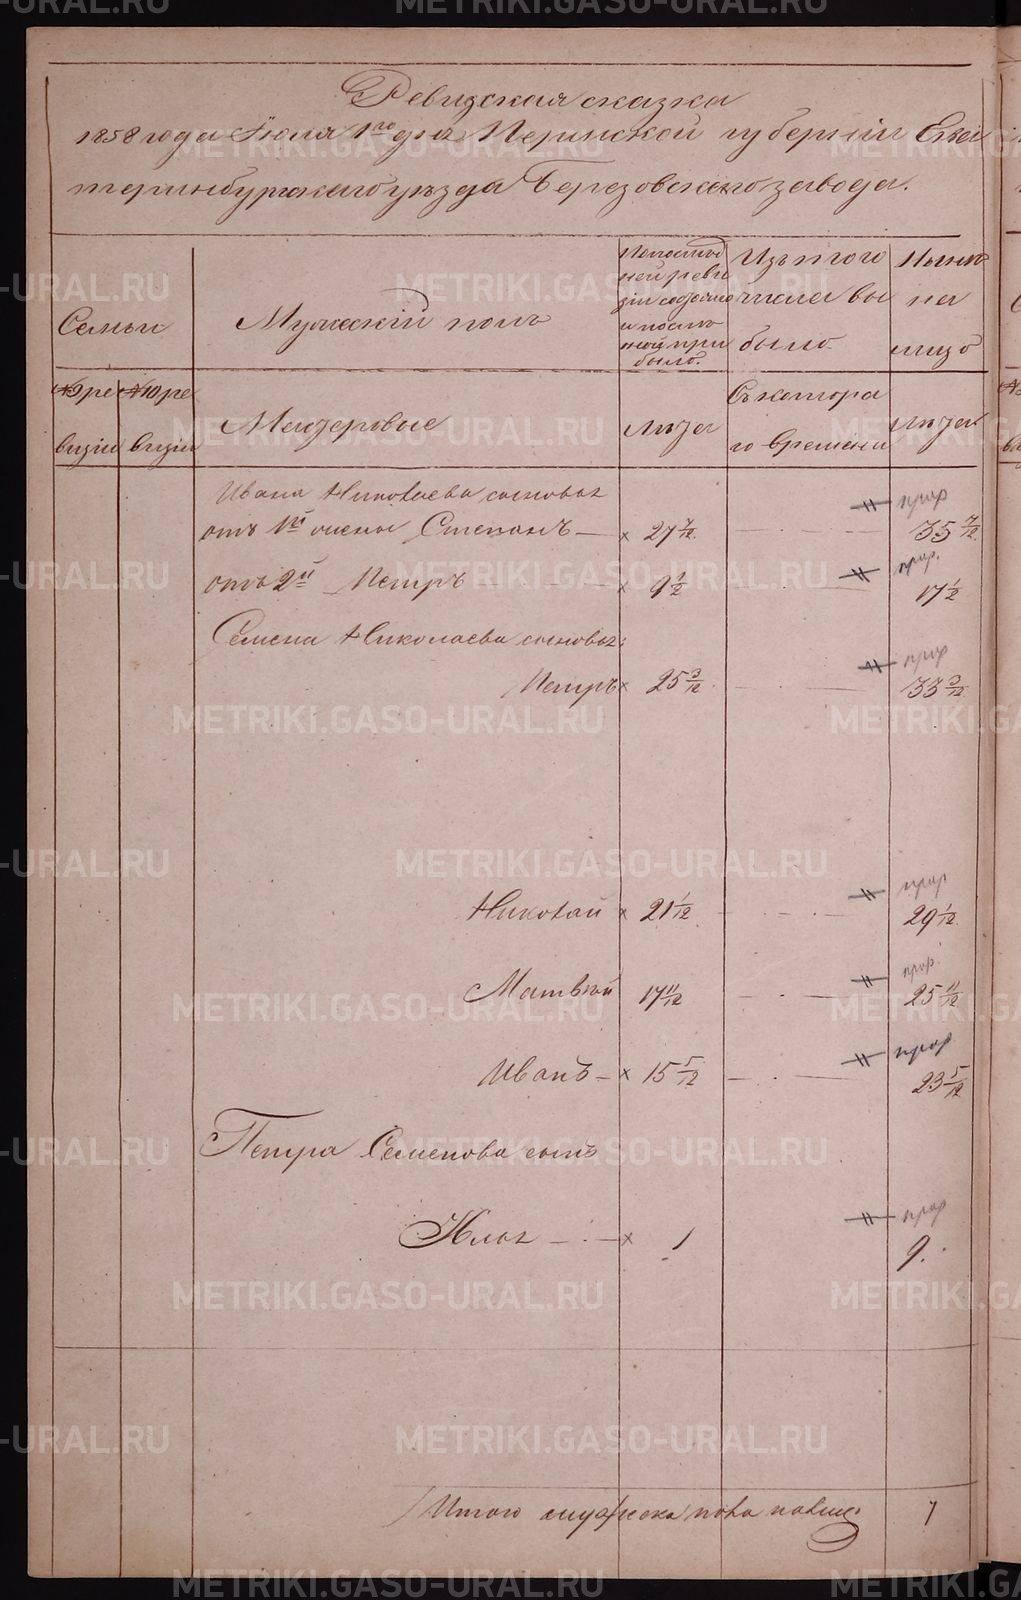 Ревизская сказка
1858 года Июля 1го дня Пермской губернии Екат
теринбургскаго уезда Березовскаго завода.
Семьи
Мужескій полъ
По послѣд
ней реви
зіи состояло
и после
оной при
было.
Изъ того
числа вы
было.
Ныне
на
лицо
№9 ре
визіи
№10 ре
визіи
Мастеровые
Лѣта
Съ котора
го времени
Лѣта
Ивана Николаева сыновья
отъ 1й жены Степанъ 27 7/12 35 7/12
отъ 2й Петръ 9 1/2 17 1/2
Семена Николаева сыновья:
Петръ 25 3/12 33 3/12
Николай 21 1/12 29 1/12
Матвѣй 17 11/12 25 11/12
Иванъ 15 5/12 23 5/12
Петра Семенова сынъ
Илья 1 9.
Итого мужеска пола налицо 7
METRIKI.GASO-URAL.RU